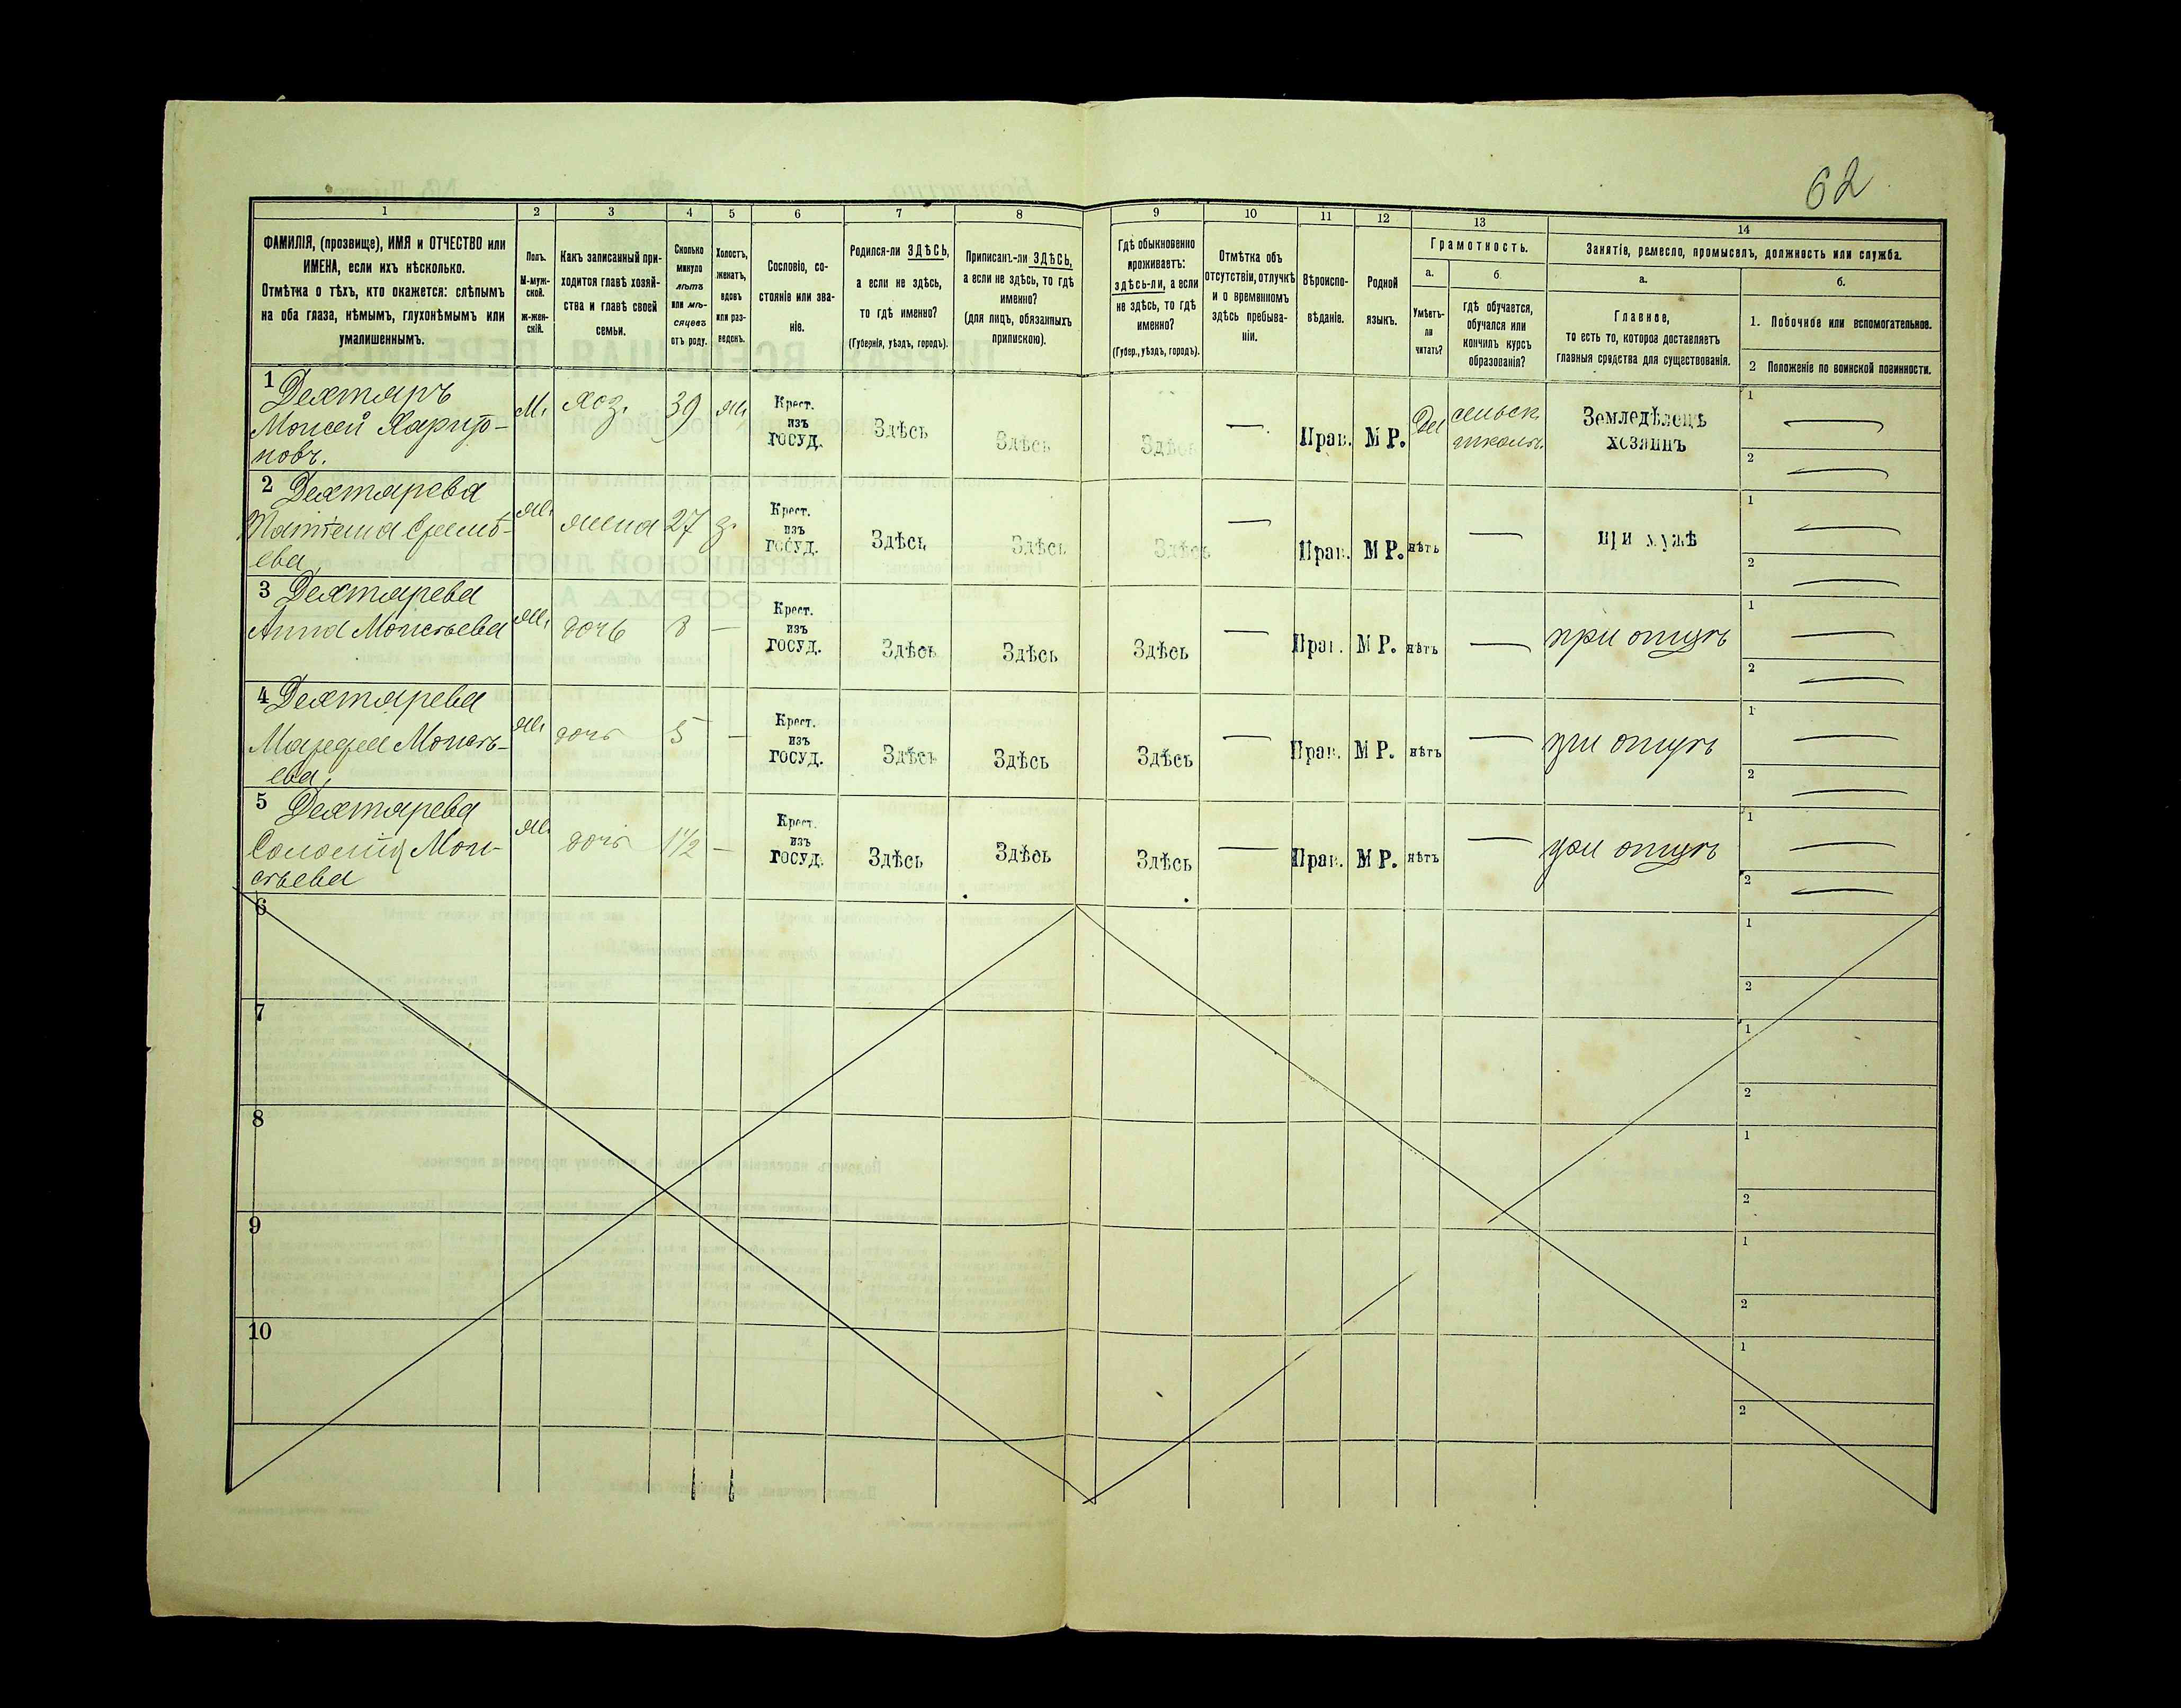 62
1 2 3 4 5 6 7 8 9 10 11 12 13 14
ФАМИЛІЯ, (прозвище), ИМЯ и ОТЧЕСТВО или
ИМЕНА, если ихъ нѣсколько.
Отмѣтка о тѣхъ, кто окажется: слѣпымъ
на оба глаза, нѣмымъ, глухонѣмымъ или
умалишеннымъ.
Полъ.
М-муж-
ской.
Ж-жен-
скій.
Какъ записанный при-
ходится главѣ хозяй-
ства и главѣ своей
семьи.
Сколько
минуло
лѣтъ
или мѣ-
сяцевъ
отъ роду.
Холостъ,
женатъ,
вдовъ
или раз-
веденъ.
Сословіе, со-
стояніе или зва-
ніе.
Родился-ли ЗДѢСЬ,
а если не здѣсь,
то гдѣ именно?
(Губернія, уѣздъ, городъ).
Приписанъ-ли ЗДѢСЬ,
а если не здѣсь, то гдѣ
именно?
(для лицъ, обязанныхъ
припискою).
Гдѣ обыкновенно
проживаетъ:
здѣсь-ли, а если
не здѣсь, то гдѣ
именно?
(Губер., уѣздъ, городъ).
Отмѣтка объ
отсутствіи, отлучкѣ
и о временномъ
здѣсь пребыва-
ніи.
Вѣроиспо-
вѣданіе.
Родной
языкъ.
Грамотность.
а.
Умѣетъ-
ли
читать?
б.
Гдѣ обучается,
обучался или
кончилъ курсъ
образованія?
Занятіе, ремесло, промыселъ, должность или служба.
а.
Главное,
то есть то, которое доставляетъ
главныя средства для существованія.
б.
1. Побочное или вспомогательное.
2 Положеніе по воинской повинности.
1 Дехтяръ
Моисей Харито-
новъ.
М. хоз. 39 ж.
Крест.
изъ
ГОСУД.
Здѣсь Здѣсь Здѣсь — Прав. М Р. Да
сельск.
школѣ.
Земледѣлецъ
хозяинъ
1 —
2 —
2 Дехтярева
ева.
ж. жена 27 з.
Крест.
изъ
ГОСУД.
Здѣсь Здѣсь Здѣсь — Прав. М Р. нѣтъ — при мужѣ
1 —
2 —
3 Дехтярева
Анна Моисѣева
ж. дочь 8 —
Крест.
изъ
ГОСУД.
Здѣсь Здѣсь Здѣсь — Прав. М Р. нѣтъ — при отцѣ
1 —
2 —
4 Дехтярева
Марфа Моисѣ-
ева.
ж. дочь 5 —
Крест.
изъ
ГОСУД.
Здѣсь Здѣсь Здѣсь — Прав. М Р. нѣтъ — при отцѣ
1 —
2 —
5 Дехтярева
Соломія Мои-
сѣева
ж. дочь 1½ —
Крест.
изъ
ГОСУД.
Здѣсь Здѣсь Здѣсь — Прав. М Р. нѣтъ — при отцѣ
1 —
2 —
6
1
2
7
1
2
8
1
2
9
1
2
10
1
2